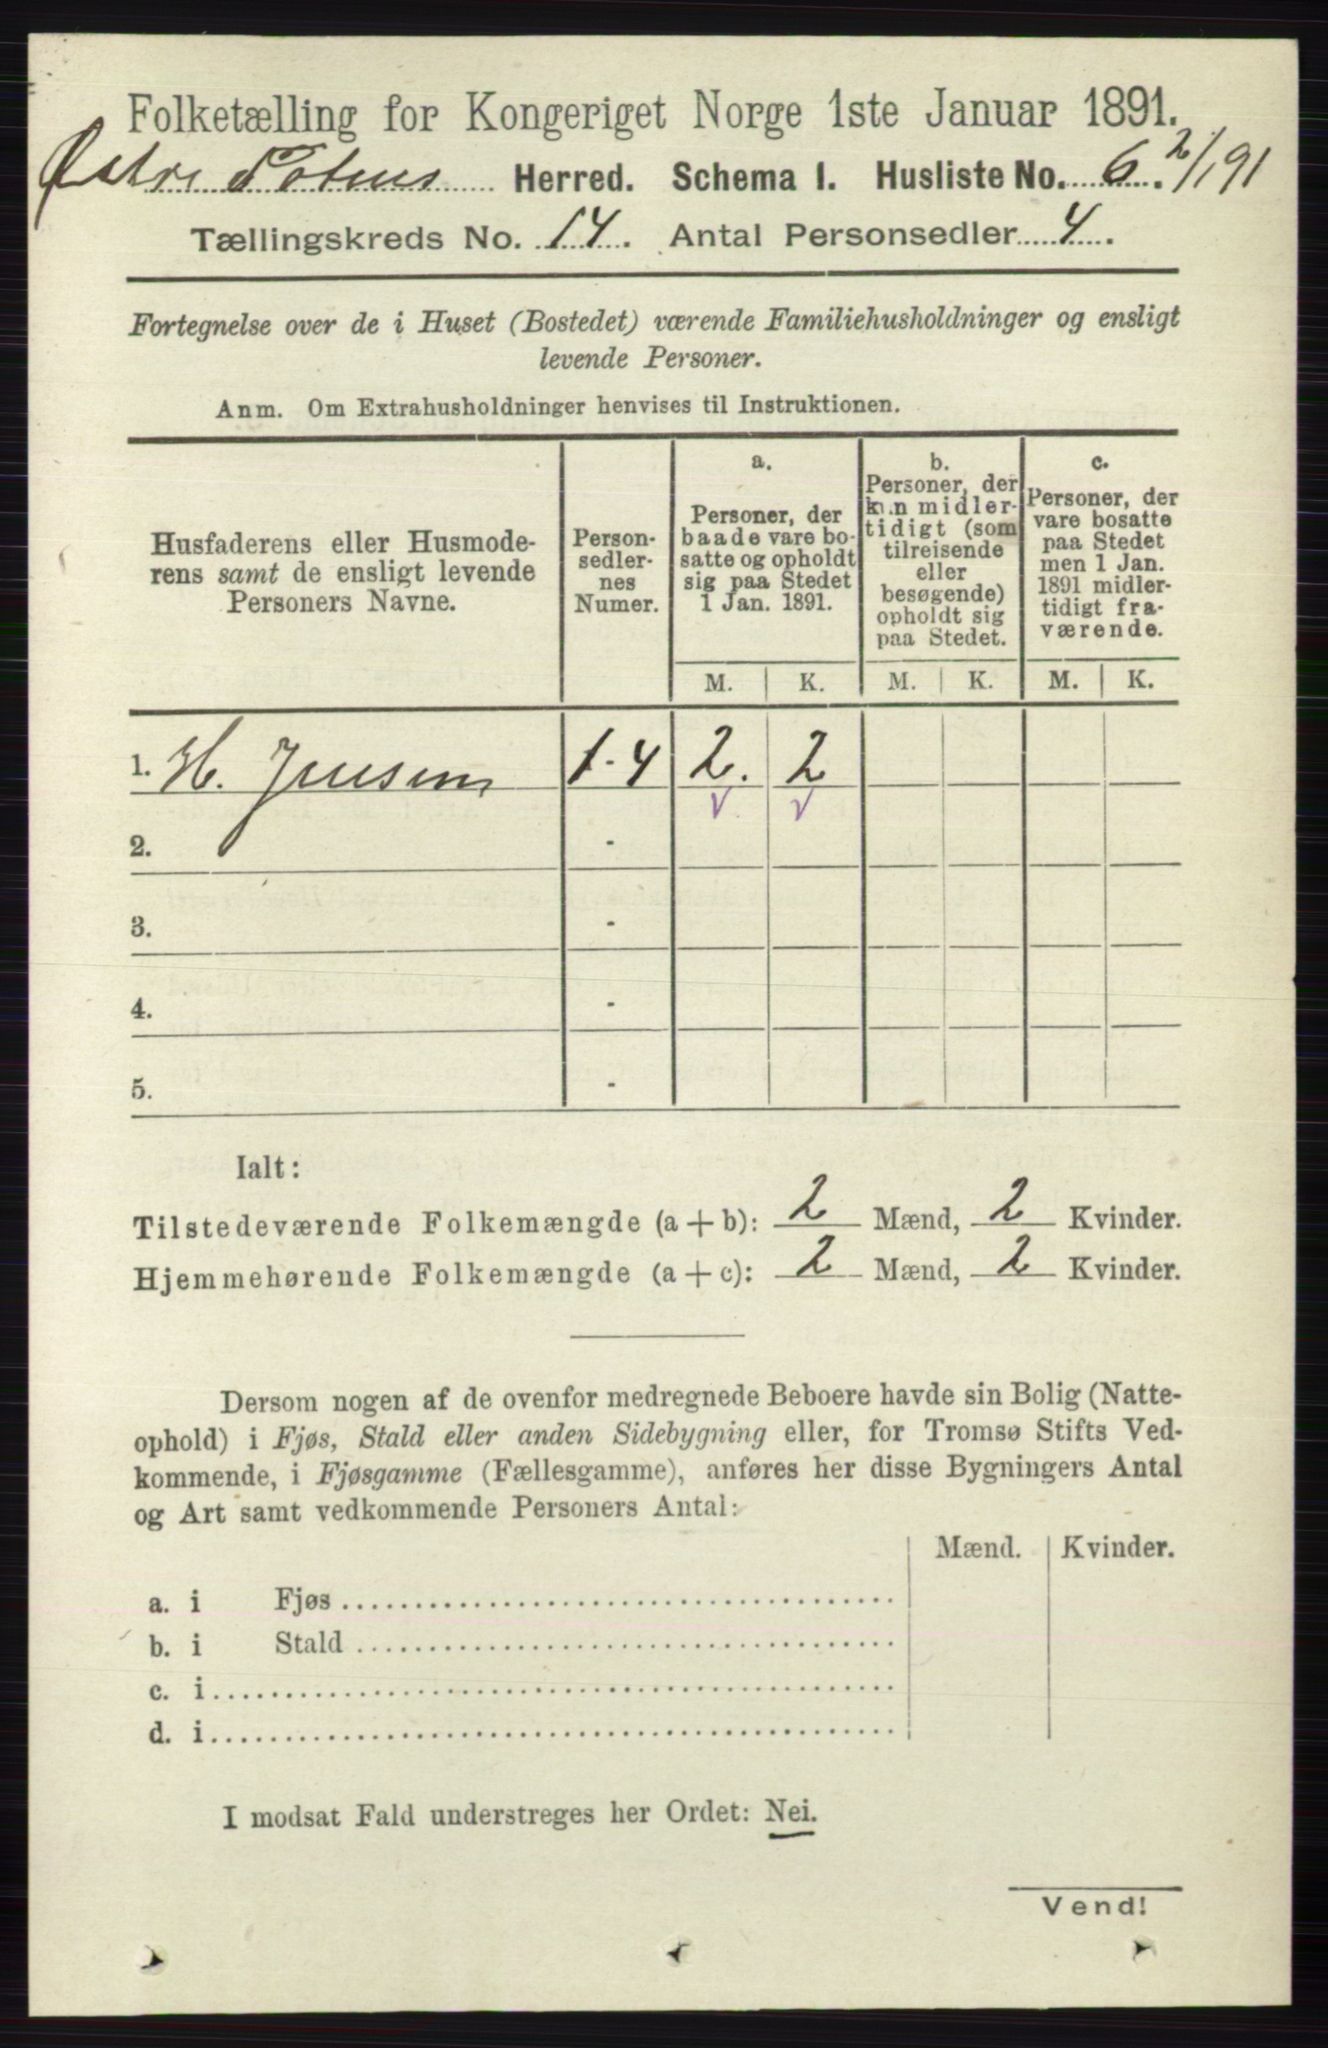 Folketælling for Kongeriget Norge 1ste Januar 1891.
Østre Totens Herred. Schema I. Husliste No. 6. 2/191
Tællingskreds No. 14. Antal Personsedler 4.
Fortegnelse over de i Huset (Bostedet) værende Familiehusholdninger og ensligt
levende Personer.
Anm. Om Extrahusholdninger henvises til Instruktionen.
Husfaderens eller Husmode-
rens samt de ensligt levende
Personers Navne.
Person-
sedler-
nes
Numer.
a.
Personer, der
baade vare bo-
satte og opholdt
sig paa Stedet
1 Jan. 1891.
b.
Personer, der
kun midler-
tidigt (som
tilreisende
eller
besøgende)
opholdt sig
paa Stedet.
c.
Personer, der
vare bosatte
paa Stedet
men 1 Jan.
1891 midler-
tidigt fra-
værende.
M. K. M. K. M. K.
1. H. Jensen 1-4 2. 2
2. -
3. -
4. -
5. -
Ialt:
Tilstedeværende Folkemængde (a+b): 2 Mænd, 2 Kvinder.
Hjemmehørende Folkemængde (a+c): 2 Mænd, 2 Kvinder.
Dersom nogen af de ovenfor medregnede Beboere havde sin Bolig (Natte-
ophold) i Fjøs, Stald eller anden Sidebygning eller, for Tromsø Stifts Ved-
kommende, i Fjøsgamme (Fællesgamme), anføres her disse Bygningers Antal
og Art samt vedkommende Personers Antal:
Mænd. Kvinder.
a. i Fjøs
b. i Stald
c. i
d. i
I modsat Fald understreges her Ordet: Nei.
Vend!